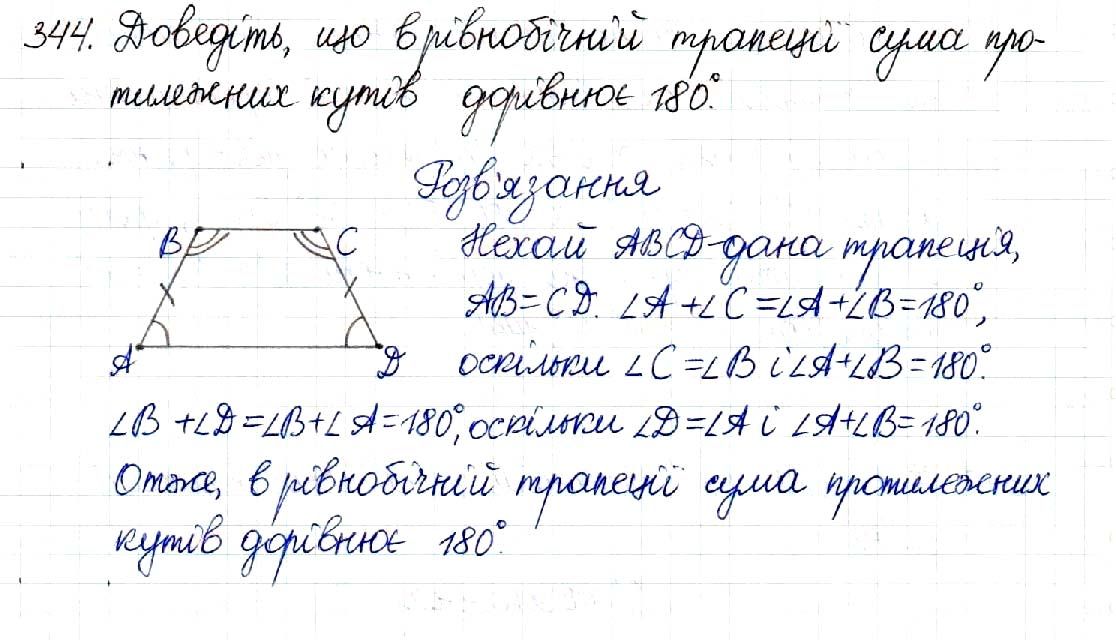 344. Доведіть, що в рівнобічній трапеції сума про-
тилежних кутів дорівнює 180°.
Розв'язання
B C Нехай ABCD - дана трапеція,
AB = CD. ∠A + ∠C = ∠A + ∠B = 180°,
A D оскільки ∠C = ∠B і ∠A + ∠B = 180°.
∠B + ∠D = ∠B + ∠A = 180°, оскільки ∠D = ∠A і ∠A + ∠B = 180°.
Отже, в рівнобічній трапеції сума протилежних
кутів дорівнює 180°.